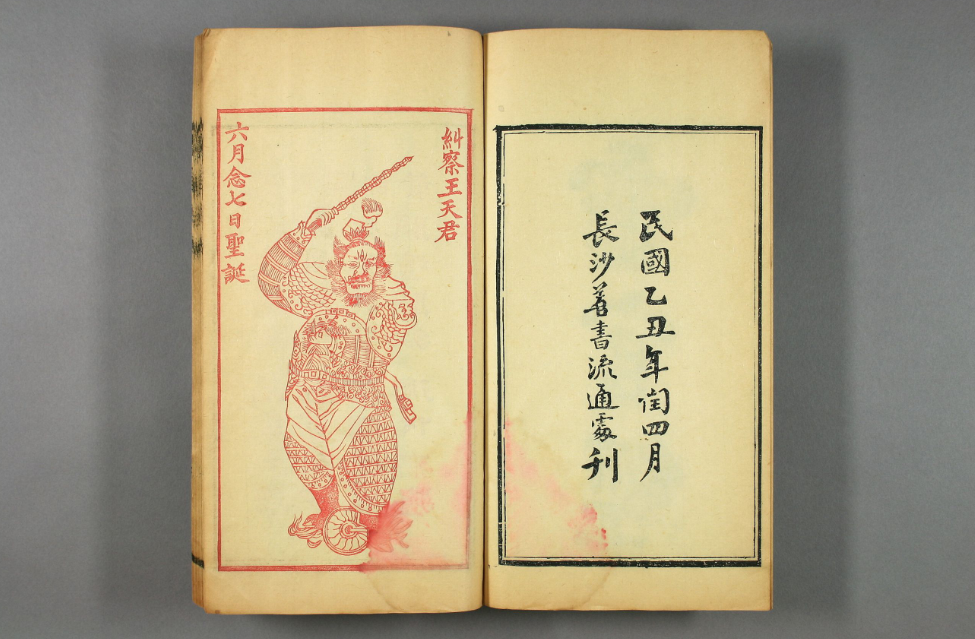 民國乙丑年閏四月
長沙善書流通處刊
糾察王天君
六月念七日聖誕